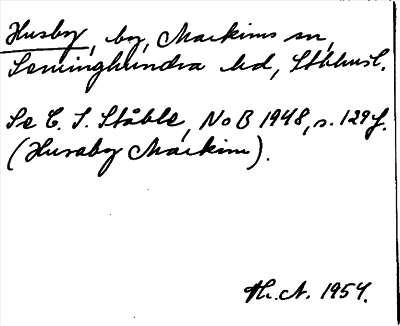 Husby, by, Markims sn,
Seminghundra hd, Sthlms l.
Se C. I. Ståhle, NoB 1948, s. 129 f.
(Husaby Markim).
Th. A. 1954.